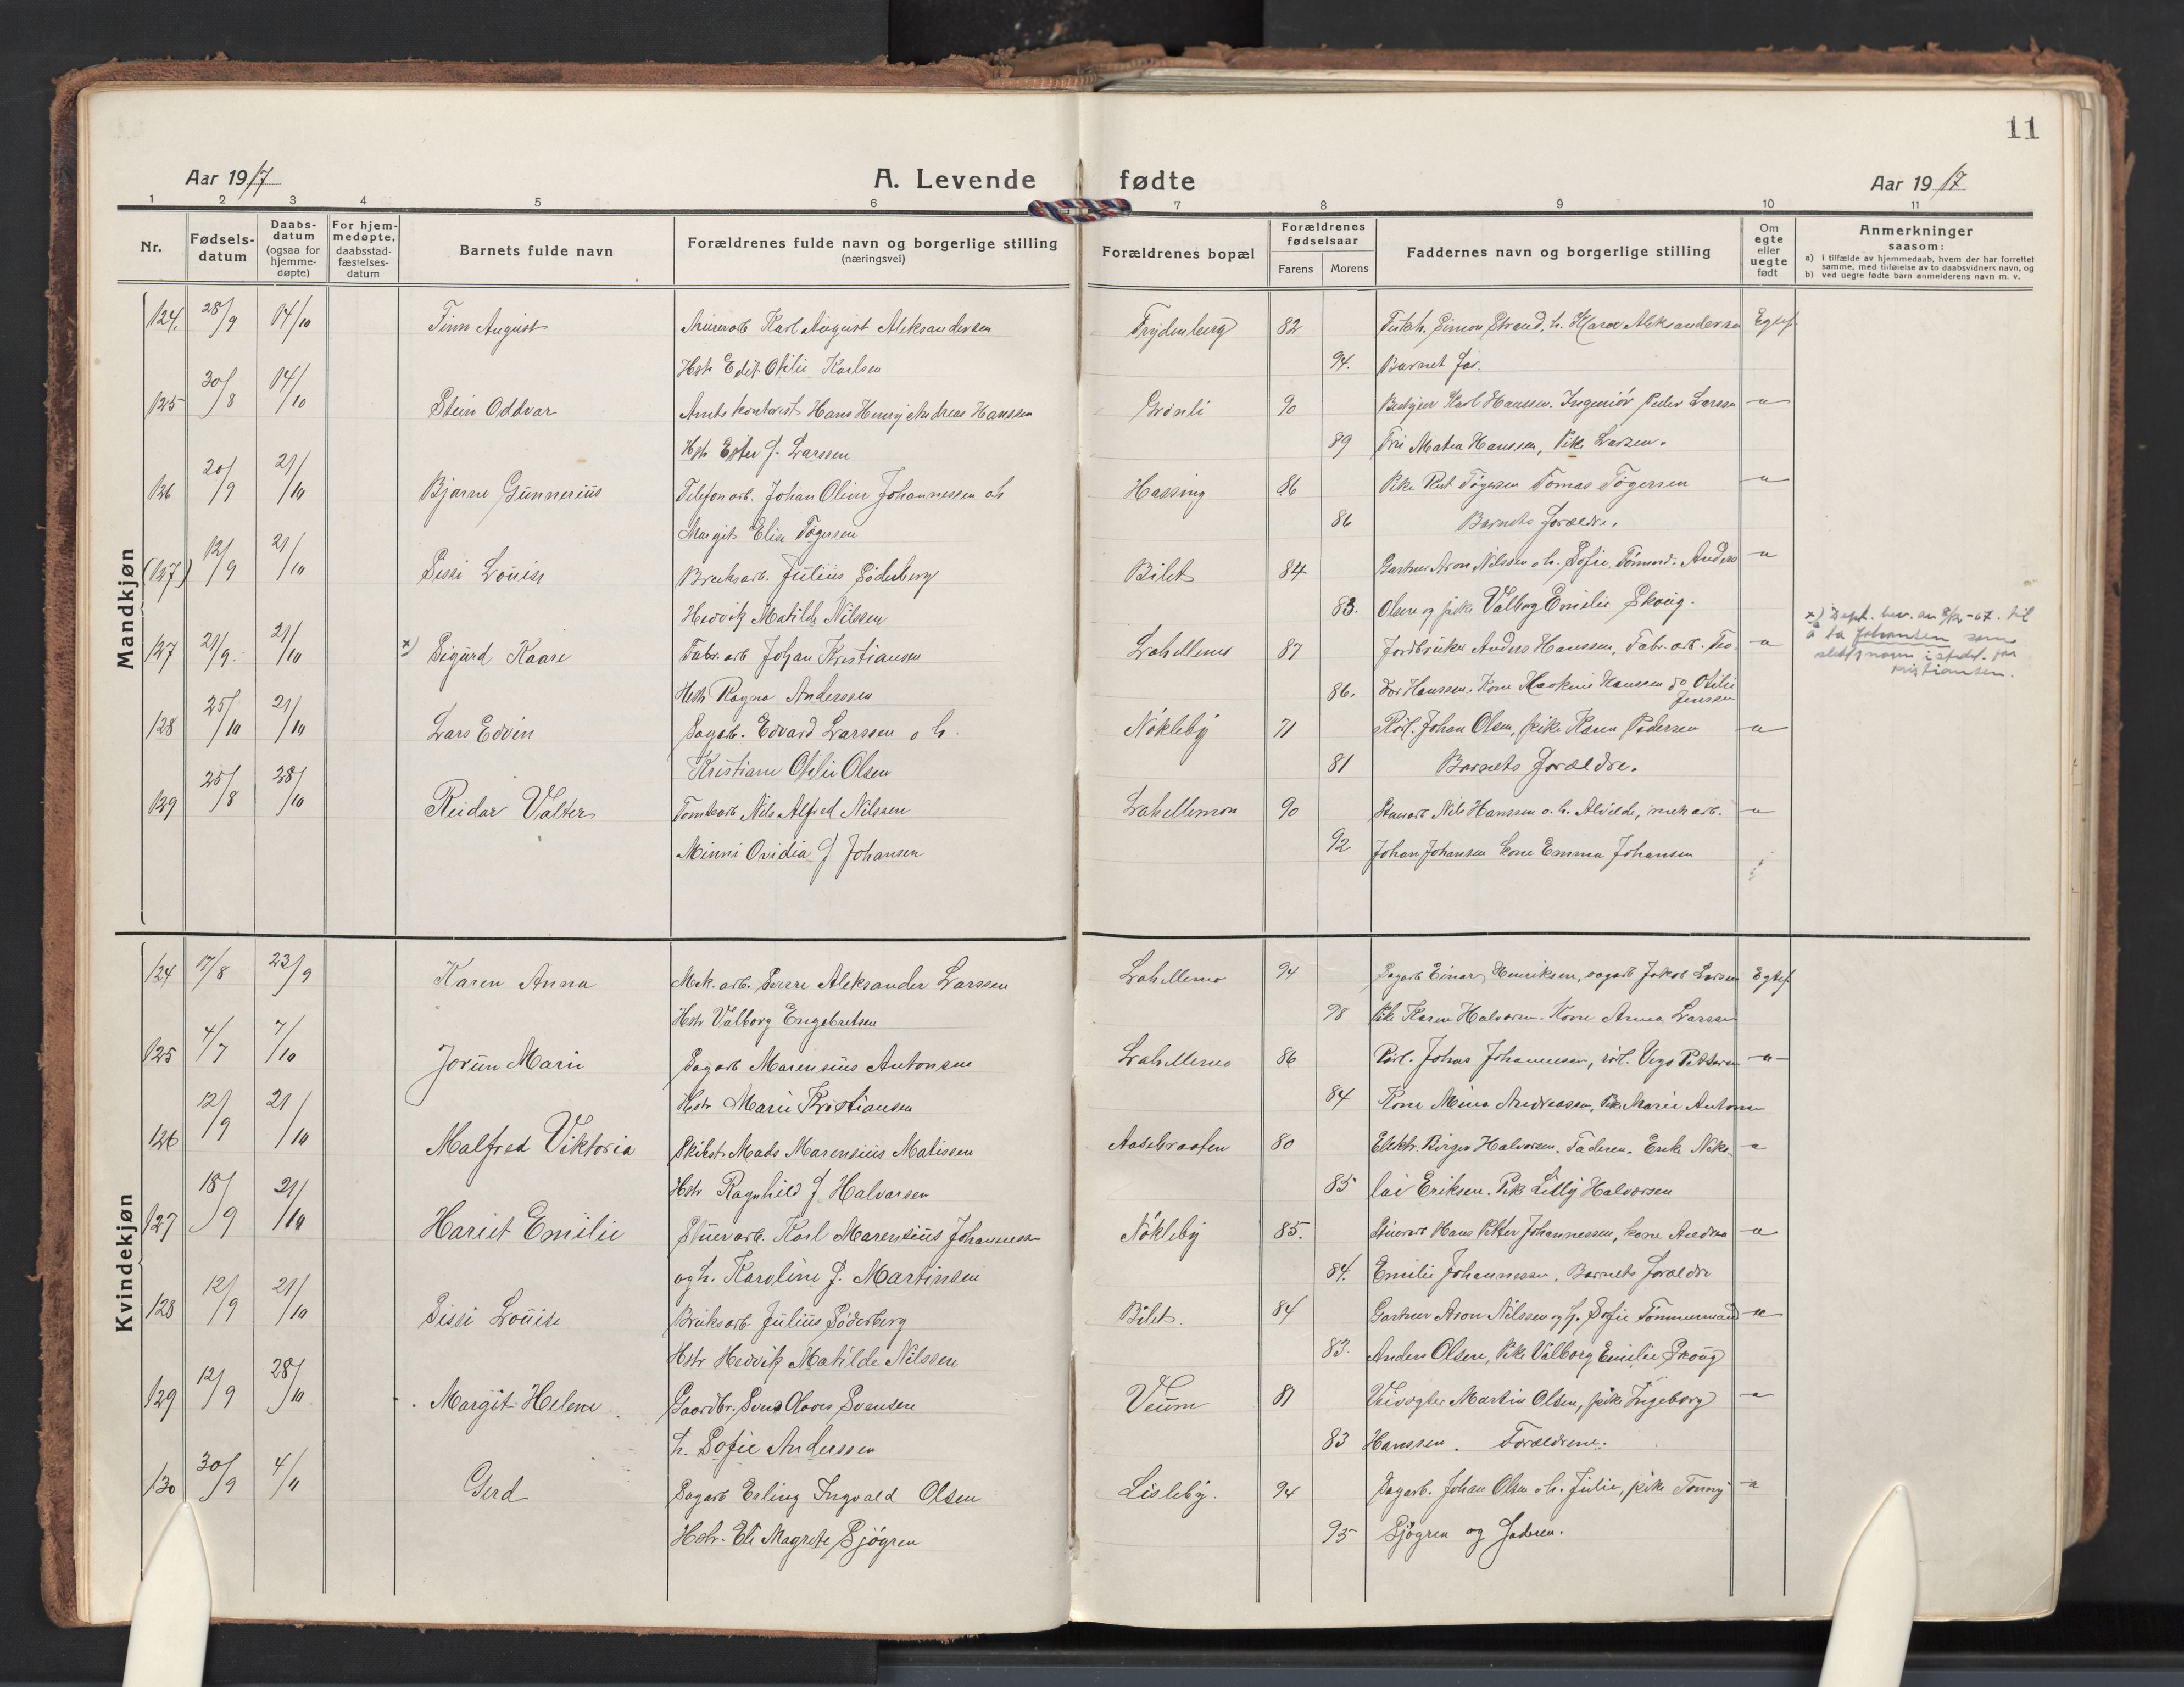 11
Aar 1917
A. Levende fødte
Aar 1917
1 2 3 4 5 6 7 8 9 10 11
Nr.
Fødsels-
datum
Daabs-
datum
(ogsaa for
hjemme-
døpte)
For hjem-
medøpte,
daabsstad-
fæstelses-
datum
Barnets fulde navn
Forældrenes fulde navn og borgerlige stilling
(næringsvei)
Forældrenes bopæl
Forældrenes
fødselsaar
Farens Morens
Faddernes navn og borgerlige stilling
Om
egte
eller
uegte
født
Anmerkninger
saasom:
a) i tilfælde av hjemmedaab, hvem der har forrettet
samme, med tilføielse av to daabsvidners navn, og
b) ved uegte fødte barn anmelderens navn m. v.
Mandkjøn
124. 28/9 04/10 Finn August Murerarb Karl August Aleksandersen Frydenberg 82 Simon Strand, h. Aleksandersen Egtef
Hstr Edit Otilie Karlsen 94. Barnet far.
125 30/8 04/10 Stein Oddvar Amtskontorist Hans Henry Andreas Hanssen Grønli 90 Bestyrer Karl Hanssen. Ingeniør Peder Larssen -"-
Hstr Ester f. Larssen 89 Fru Matea Hanssen, Pike Larsen.
126 20/9 21/10 Bjarne Gunnerius Telefonarb. Johan Oliver Johannessen oh Hassing 86 Pike Rut Tøgersen Tomas Tøgersen -"-
Margit Elise Tøgersen 86 Barnets forældre.
(127) 12/9 21/10 Sissi Louise Bruksarb. Julius Søderberg Bilet 84 Gartner Aron Nilssen o h. Sofie, Tømmerm. Anders -"-
Hedvig Matilde Nilssen 83. Olsen og pike Valborg Emilie Skoug.
127 21/9. 21/10 x) Sigurd Kaare Fabr. arb Johan Kristiansen Lahellemo 87 Jordbruker Anders Hanssen, Fabr. arb. Teo- -"-
Hstr Ragna Anderssen 86. dor Hanssen. Kone Hanssen do Otilie
Jenssen
x) Dept. bev. av 9/12-67. til
å ta Johansen som
slektsnavn istedet. for
Kristiansen.
128 25/10 21/10 Lars Edvin Sagarb. Edvard Larssen o h. Nøkleby 71 Johan Olsen, pike Karen Pedersen -"-
Kristiane Otilie Olsen 81 Barnets forældre.
129 25/8 28/10 Reidar Valter Tomtearb Nils Alfred Nilssen Lahellemoen 90 Stuearb Nils Hanssen o. h. Alvilde, mek arb. -"-
Minni Ovidia f Johansen 92 Johan Johansen kone Emma Johansen
Kvindekjøn
124 17/8 23/9 Karen Anna Mek. arb. Sverre Aleksander Larssen Lahellemo 94 Sagarb Einar Henriksen, sagarb Jakob Larsen Egtef
Hstr Valborg Engebretsen 98 Pike Karen Halvorsen. Kone Anna Larssen
125 4/7 7/10 Jorun Marie Sagarb Marensius Antonsen Lahellemo 86 Johan Johannessen, Vigo Pettersen -"-
Hstr Marie Kristiansen 84 Kone Mina Andreassen, Pike Marie Antonsen
126 12/9 21/10 Malfred Viktoria Skibst. Mads Marensius Matissen Aasebraaten 80 Elektr. Birger Halvorsen. Faderen. Enke Niko- -"-
Hstr Ragnhild f. Halvorsen 85 lai Eriksen. Pike Lilly Halvorsen
127 18/9 21/10 Hariet Emilie Stuerarb. Karl Marensius Johannessen Nøkleby 85. Stuerarb Hans Petter Johannessen, kone Andrea -"-
og h. Karoline f. Martinsen 84. Emilie Johannessen. Barnets forældre
128 12/9 21/10 Sissi Louise Bruksarb. Julius Søderberg Bilet. 84 Gartner Aron Nilssen og h. Sofie Tømmermand -"-
Hstr Hedvig Matilde Nilssen 83. Anders Olsen, Pike Valborg Emilie Skoug
129 12/9 28/10 Margit Helene Gaardbr. Sven Olaves Svensen Veum 81 Veivogter Martin Olsen, pike Ingeborg -"-
h. Sofie Anderssen 83 Hanssen. Forældrene.
130 30/9 4/11 Gerd Sagarb Erling Ingvald Olsen Lisleby. 94 Sagarb. Johan Olsen o h. Julie, pike Tonny -"-
Hstr. Eli Magrete Sjøgren 95 Sjøgren og faderen.